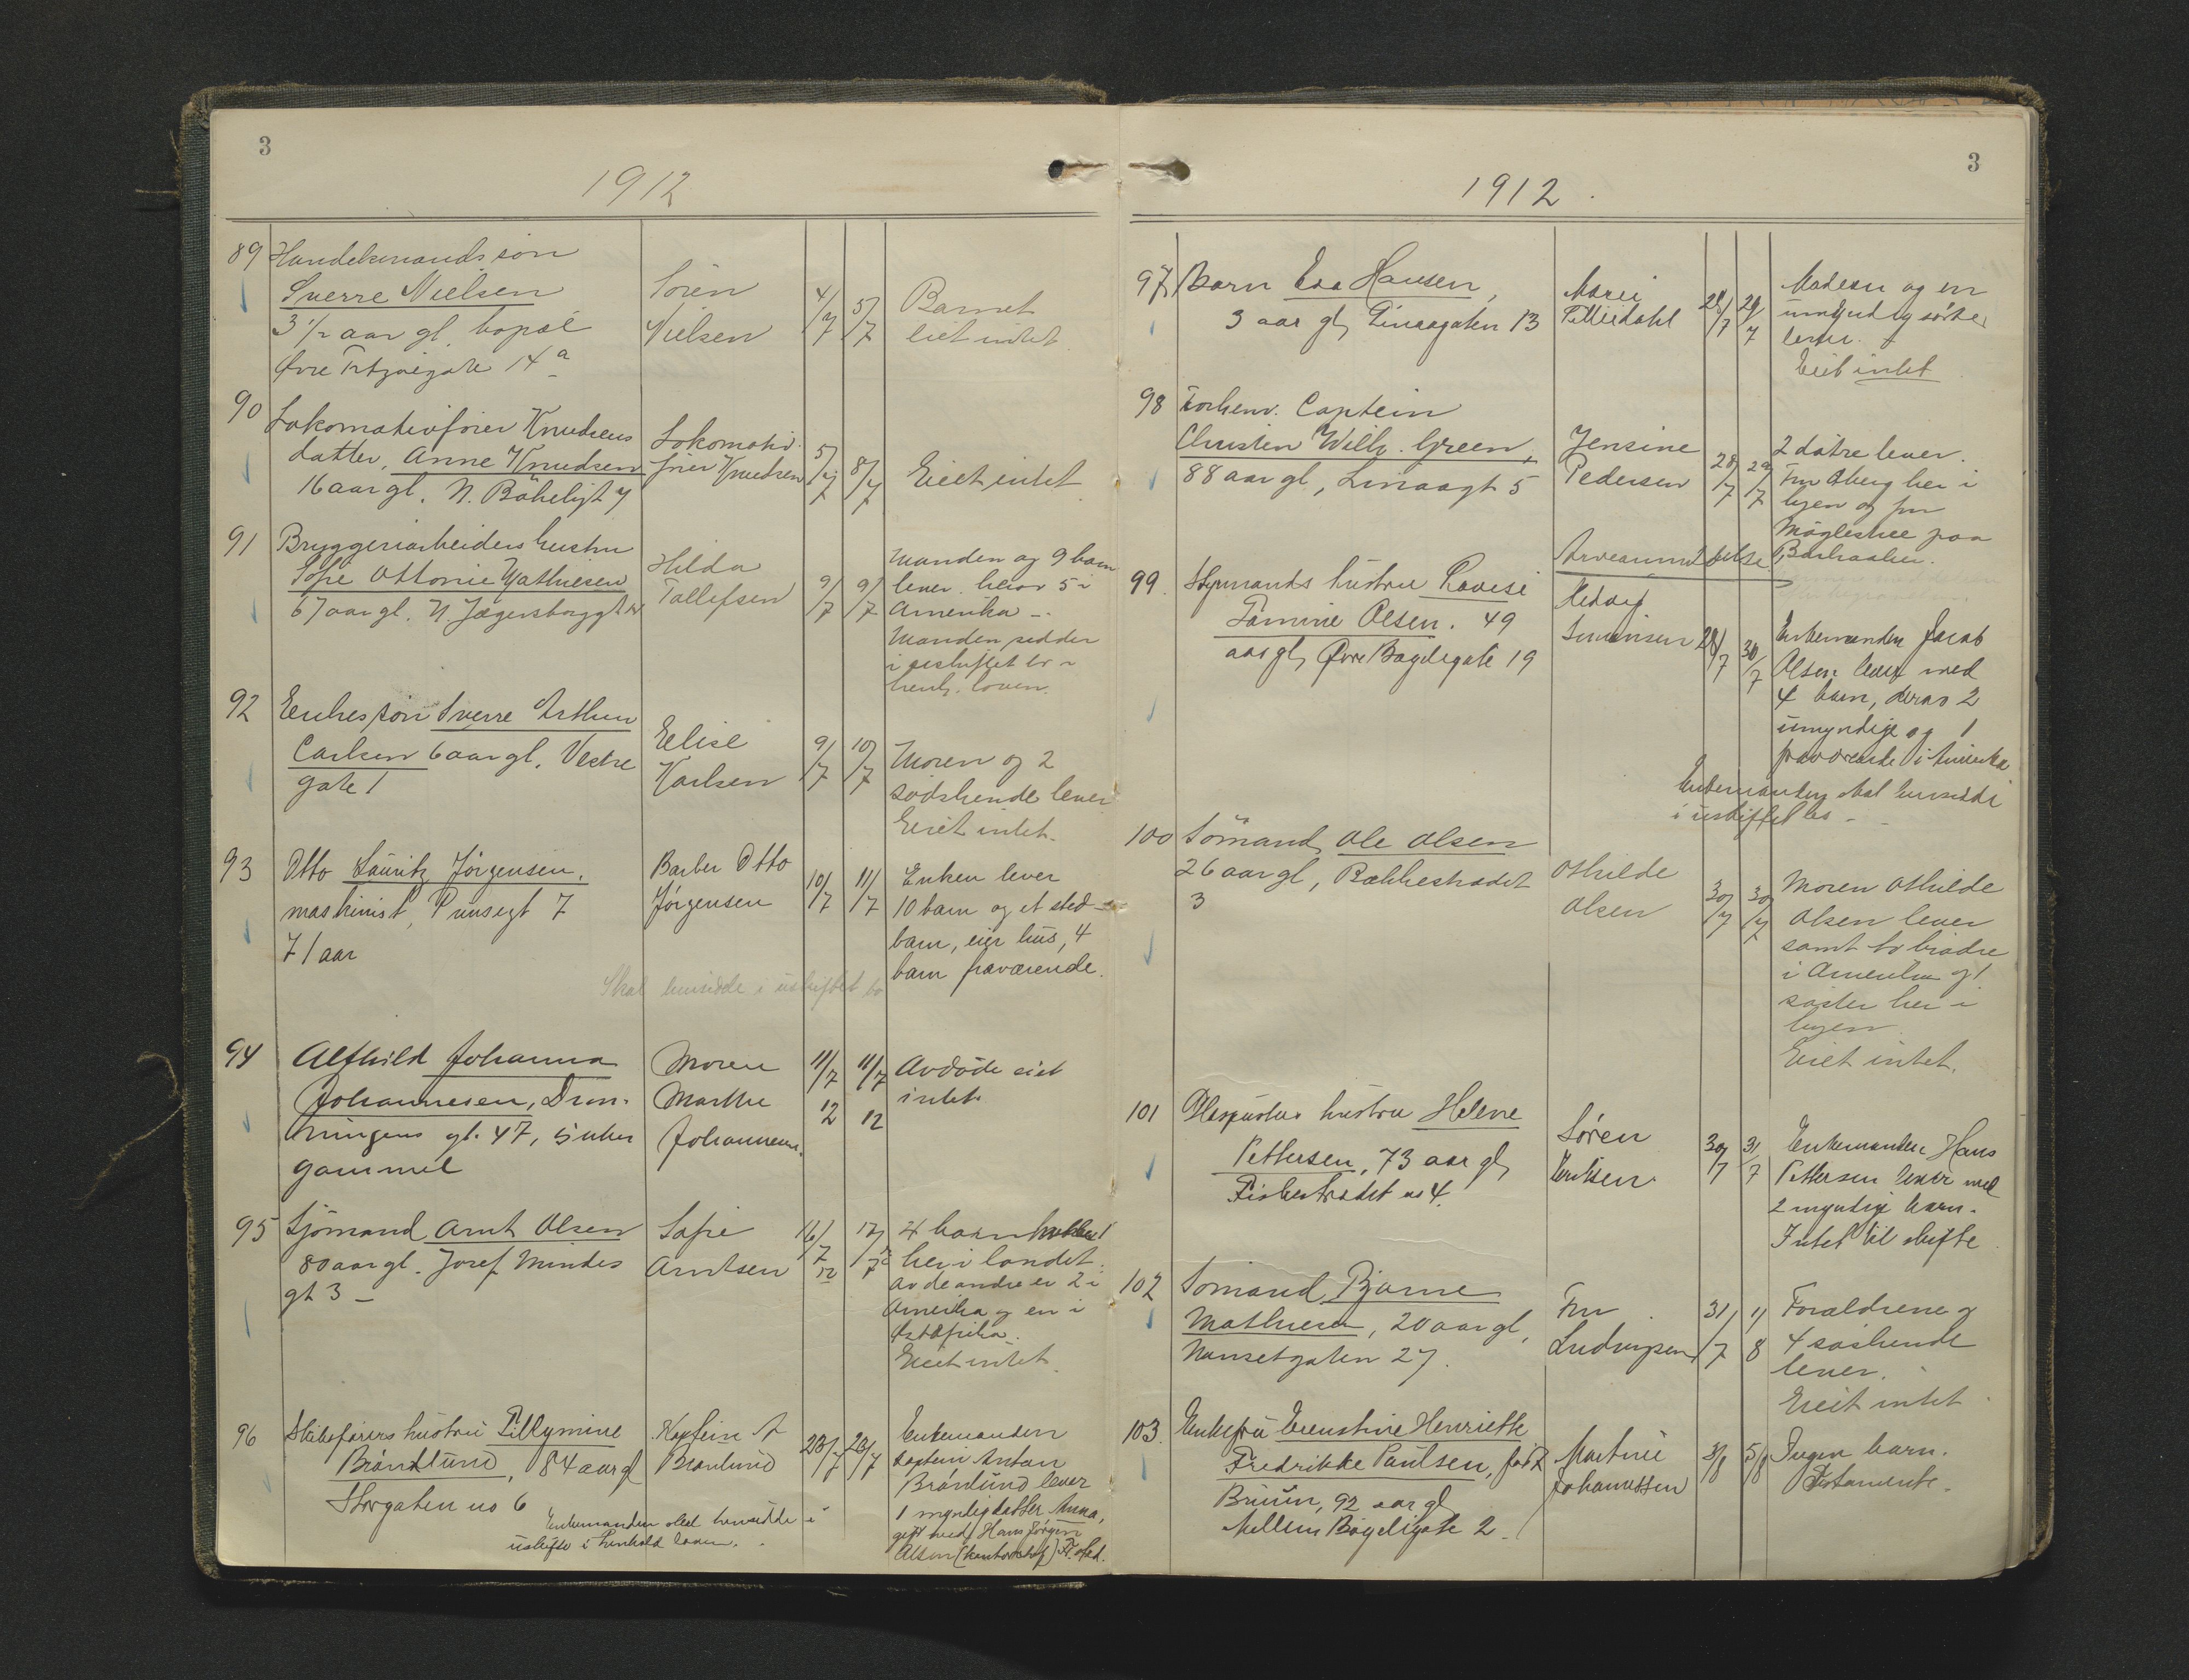 3
1912
89 Handelsmands søn
Sverre Nielsen
3 1/2 aar gl. bopæl
Øvre 14 a
Sören
Nielsen
4/7 5/7
Barnet
eiet intet
90 Lokomotivfører Knudsens
datter, Anne Knudsen
16 aar gl. N. Bökeligt 7
Lokomotiv-
fører Knudsen
5/7 8/7
Eiet intet
91 Bryggeriarbeiders hustru
Sofie Ottonie Mathiesen
67 aar gl. N. Jegersborggt
Hilda
Tollefsen
9/7 9/7
Manden og 9 barn
lever. herav 5 i
Amerika -.
Manden sidder
i uskiftet bo i
henh. loven.
92 Enkes søn Sverre Arthur
Carlsen 6 aar gl. Vestre
gate 1
Elise
Karlsen
9/7 10/7
Moren og 2
södskende lever
Eiet intet.
93 Otto Lauritz Jörgensen,
maskinist, Prinsegt 7
71 aar
Barber Otto
Jörgensen
10/7 11/7
Enken lever
10 barn og et sted-
barn, eier hus, 4
barn fraværende.
Skal hensidde i uskiftet bo
94 Alfhild Johanna
Johannesen, Dron-
ningens gt. 47, 5 uker
gammel
Moren
Marthe
Johannesen.
11/7 11/7
12 12
Avdöde eiet
intet.
95 Sjömand Arnt Olsen
80 aar gl. Josef Mindes
gt 3 -
Sofie
Arntsen
16/7 17/7
12 12
4 barn hvorav 1
her i landet.
Av de andre er 2 i
Amerika og en i
Østafrika.
Eiet intet.
96 Skibsförers hustru
Brönlund, 84 aar gl
Storgaten no 6
Kaptein A
Brønlund
23/7 23/7
Enkemanden
kaptein Anton
Brönlund lever
1 myndig datter Anna,
gift med Hans Jörgen
Olsen
Enkemanden skal hensidde i
uskifte i henhold loven.
3
1912.
97 Barn Eva Hansen,
3 aar gl, Linaagaten 13
Marie
Petterdahl
28/7 29/7
Moderen og en
umyndig søster
lever.
Eiet intet
98 Forhenv. Captein
Christen Wilh. Green,
88 aar gl, Linaagt 5
Jensine
Pedersen
28/7 29/7
2 dötre lever.
Fru Åberg her i
byen og fru
paa
99. Styrmands hustru Lovise
Olsen. 49
aar gl, Øvre Bøgeligate 19
Hedvig
Simonsen
28/7 30/7
Enkemanden Jacob
Olsen lever med
4 barn, derav 2
umyndige og 1
fraværende i Amerika
Enkemanden skal hensidde
i uskiftet bo -
100 Sömand Ole Olsen
26 aar gl, Bakkestrædet
3
Othilde
Olsen
30/7 30/7
Moren Othilde
Olsen lever
samt to brödre
i Amerika og 1
söster her i
byen
Eiet intet.
101 hustru Helene
Pettersen, 73 aar gl,
Fiskestrædet no 4.
Søren
Eriksen.
30/7 31/7
Enkemanden Hans
Pettersen lever med
2 myndige barn.
Intet til skifte
102 Sömand Bjarne
Mathiesen, 20 aar gl,
Nansetgaten 27.
Fru
Ludvigsen
31/7 1/8
Forældrene og
4 söskende
lever.
Eiet intet
103. Enkefru Ernstine Henriette
Fredrikke Paulsen, född
Bruun, 92 aar gl,
Mellem Bøgeligate 2.
Martine
Johannessen
3/8 5/8
Ingen barn.
Testamente.